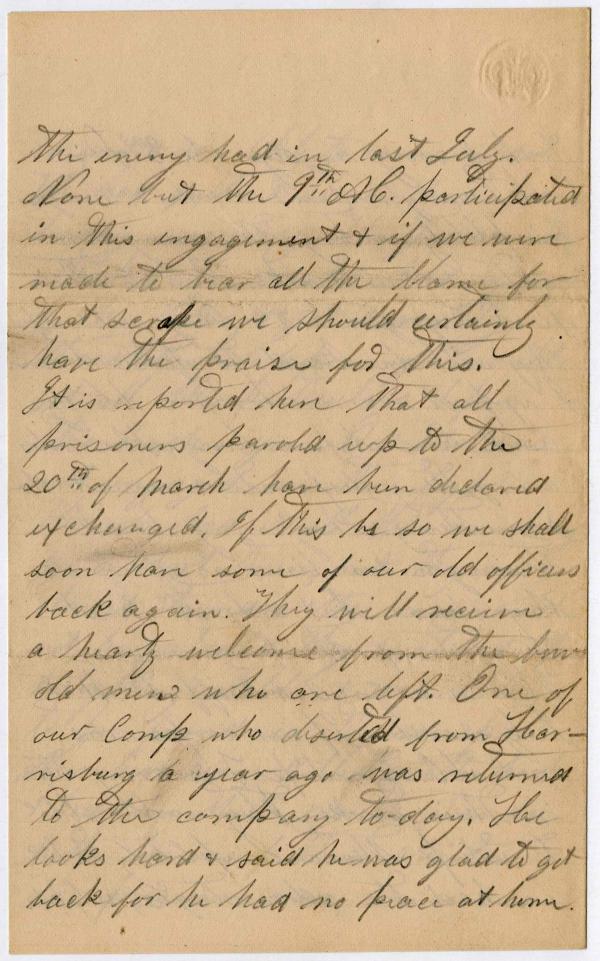 the enemy had in last July.
None but the 9th A.C. participated
in this engagement & if we were
made to bear all the blame for
that scrape we should certainly
have the praise for this.
It is reported here that all
prisoners parold up to the
20th of March have been declared
exchanged. If this be so we shall
soon have some of our old officers
back again. They will receive
a hearty welcome from the few
old men who are left. One of
our Comp who deserted from Har-
risburg a year ago was returned
to the company to-day. He
looks hard & said he was glad to get
back for he had no peace at home.